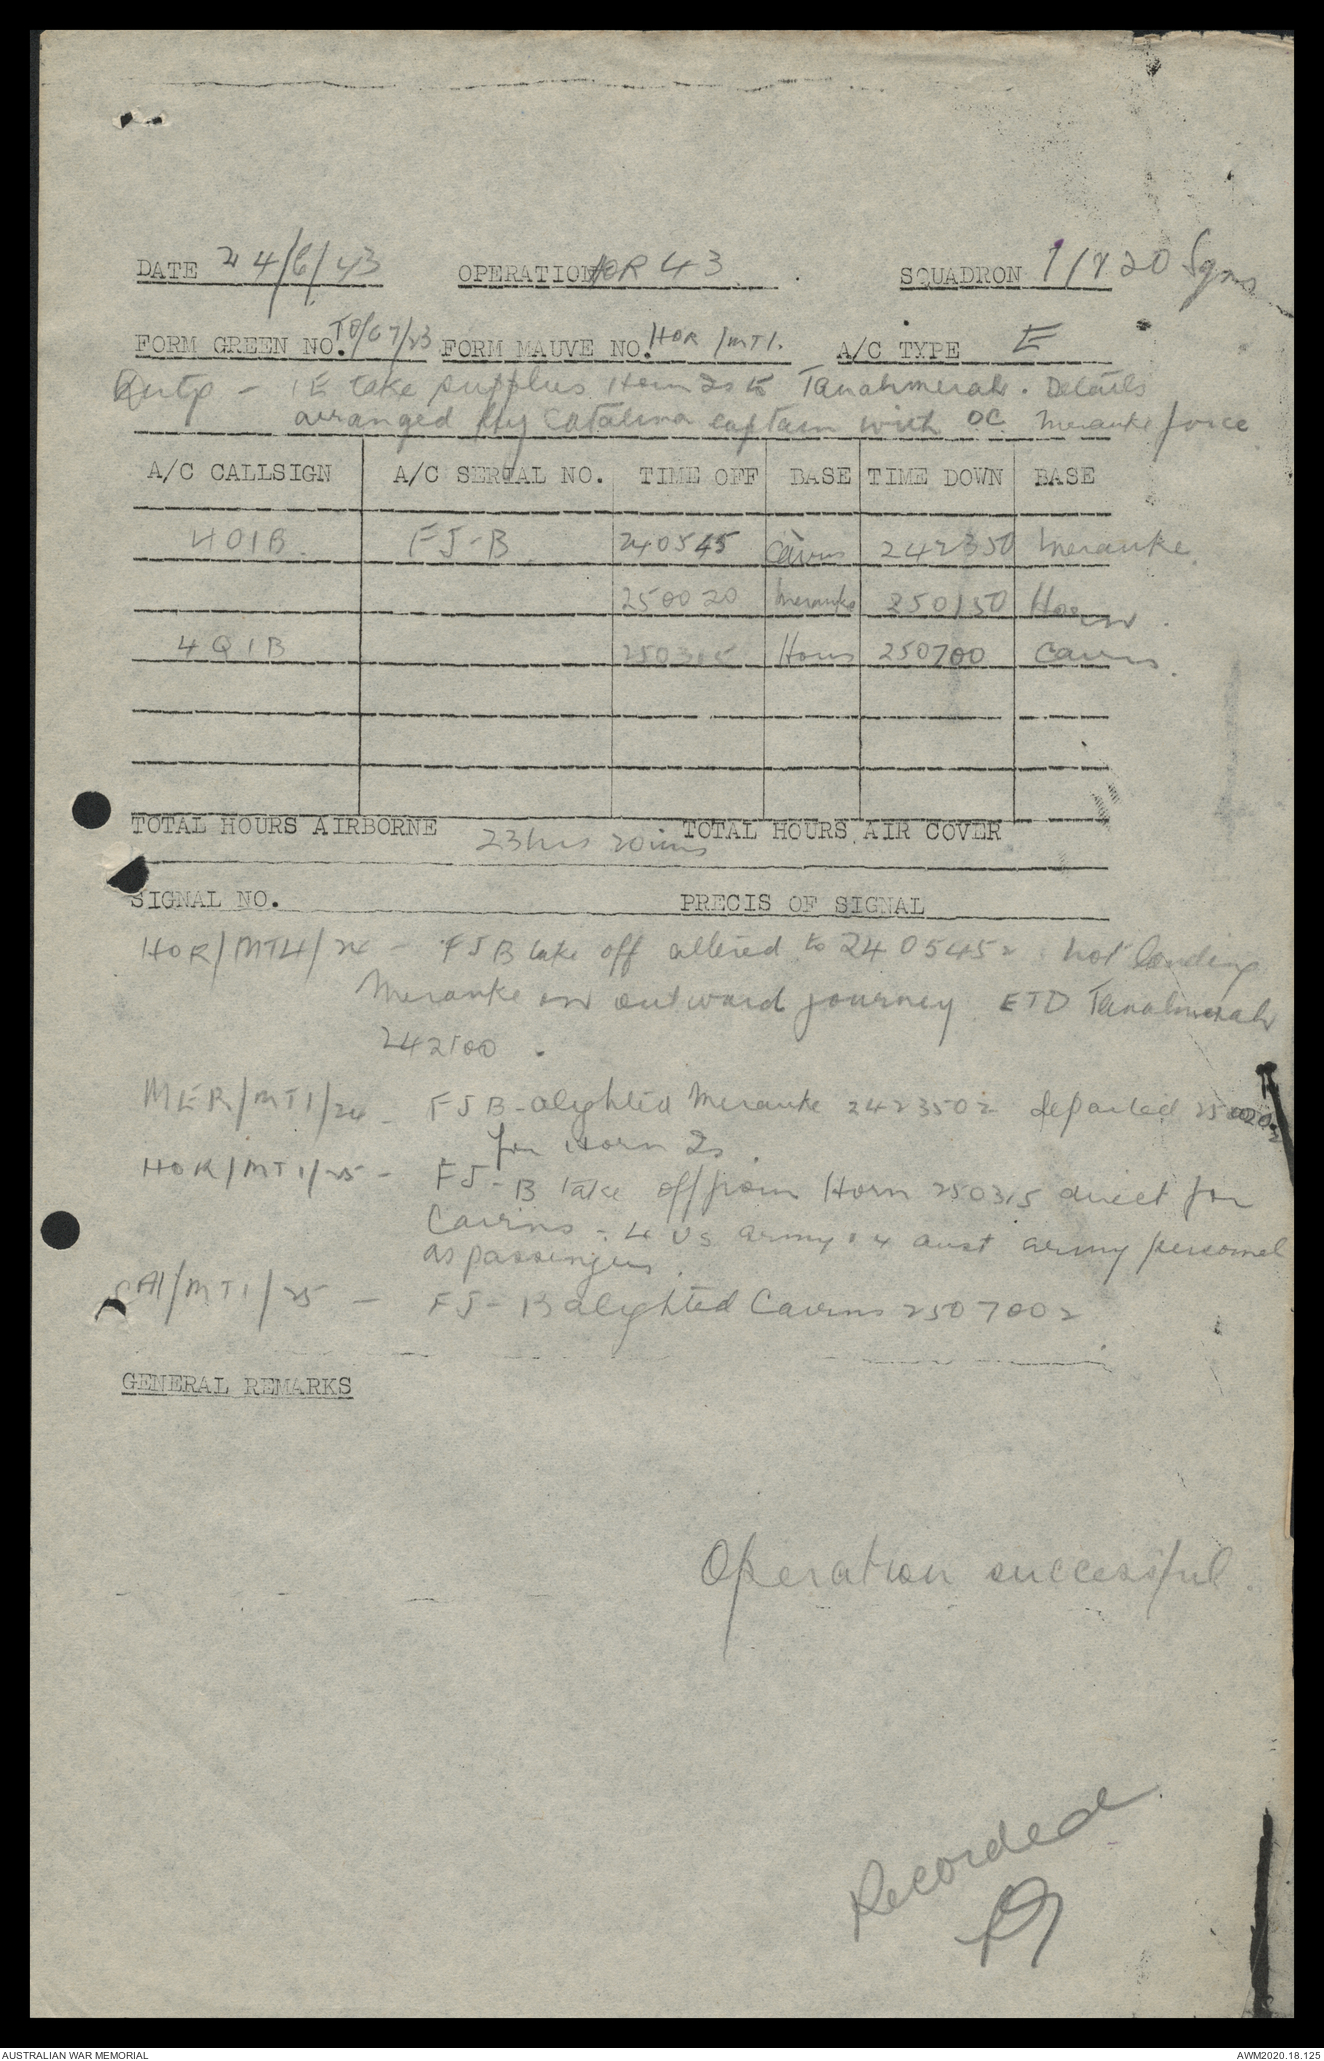 DATE 24/6/43 OPERATION HOR 43 SQUADRON 11/20 Sqns
FORM GREEN NO. T8/67/23 FORM MAUVE NO. HOR /MT1. A/C TYPE E
Duty - 1E take supplies Horn Is to Tanahmerah. Details
arranged by Catalina captain with OC. Merauke force
A/C CALLSIGN A/C SERIAL NO. TIME OFF BASE TIME DOWN BASE
401B. FJ-B 240545 Cairns 242350 Merauke.
250020 Merauke 250150 Horn.
4Q1B 250315 Horn 250700 Cairns.
TOTAL HOURS AIRBORNE 23hrs 20mins TOTAL HOURS AIR COVER
SIGNAL NO. PRECIS OF SIGNAL
HOR/MT4/24 - FJB take off altered to 240545z not landing
Merauke on outward journey. ETD Tanahmerah
242100.
MER/MT1/24 - FJB-alighted Merauke 242350z departed 250020z
for Horn Is.
HOR/MT1/25 - FJ-B take off from Horn 250315 direct for
Cairns - 4 US army & 4 aust army personnel
as passengers.
CAI/MT1/25 - FJ-B alighted Cairns 250700z
GENERAL REMARKS
Operation successful.
Recorded
AUSTRALIAN WAR MEMORIAL AWM2020.18.125